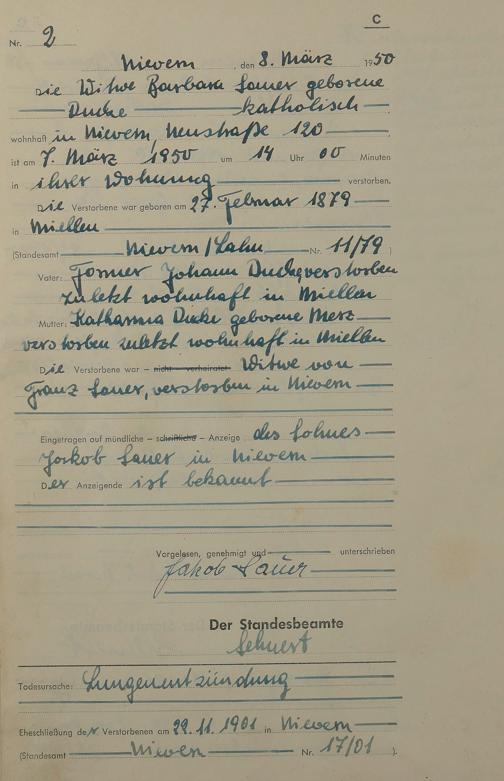 C
Nr. 2
Nievern, den 8. März 1950
Die Witwe Barbara Sauer geborene
Ducke katholisch
wohnhaft in Nievern, Neustraße 120
ist am 7. März 1950 um 14 Uhr 00 Minuten
in ihrer Wohnung verstorben.
Die Verstorbene war geboren am 27. Februar 1879
in Miellen
(Standesamt Nievern/Lahn Nr. 11/79)
Vater: Former Johann Ducke, verstorben
zuletzt wohnhaft in Miellen
Mutter: Katharina Ducke geborene Merz
verstorben zuletzt wohnhaft in Miellen
Die Verstorbene war – nicht – verheiratet Witwe von
Franz Sauer, verstorben in Nievern
Eingetragen auf mündliche – schriftliche – Anzeige des Sohnes
Jakob Sauer in Nievern
Der Anzeigende ist bekannt
Vorgelesen, genehmigt und unterschrieben
Jakob Sauer
Der Standesbeamte
Todesursache: Lungenentzündung
Eheschließung der Verstorbenen am 29.11.1901 in Nievern
(Standesamt Nievern Nr. 17/01)